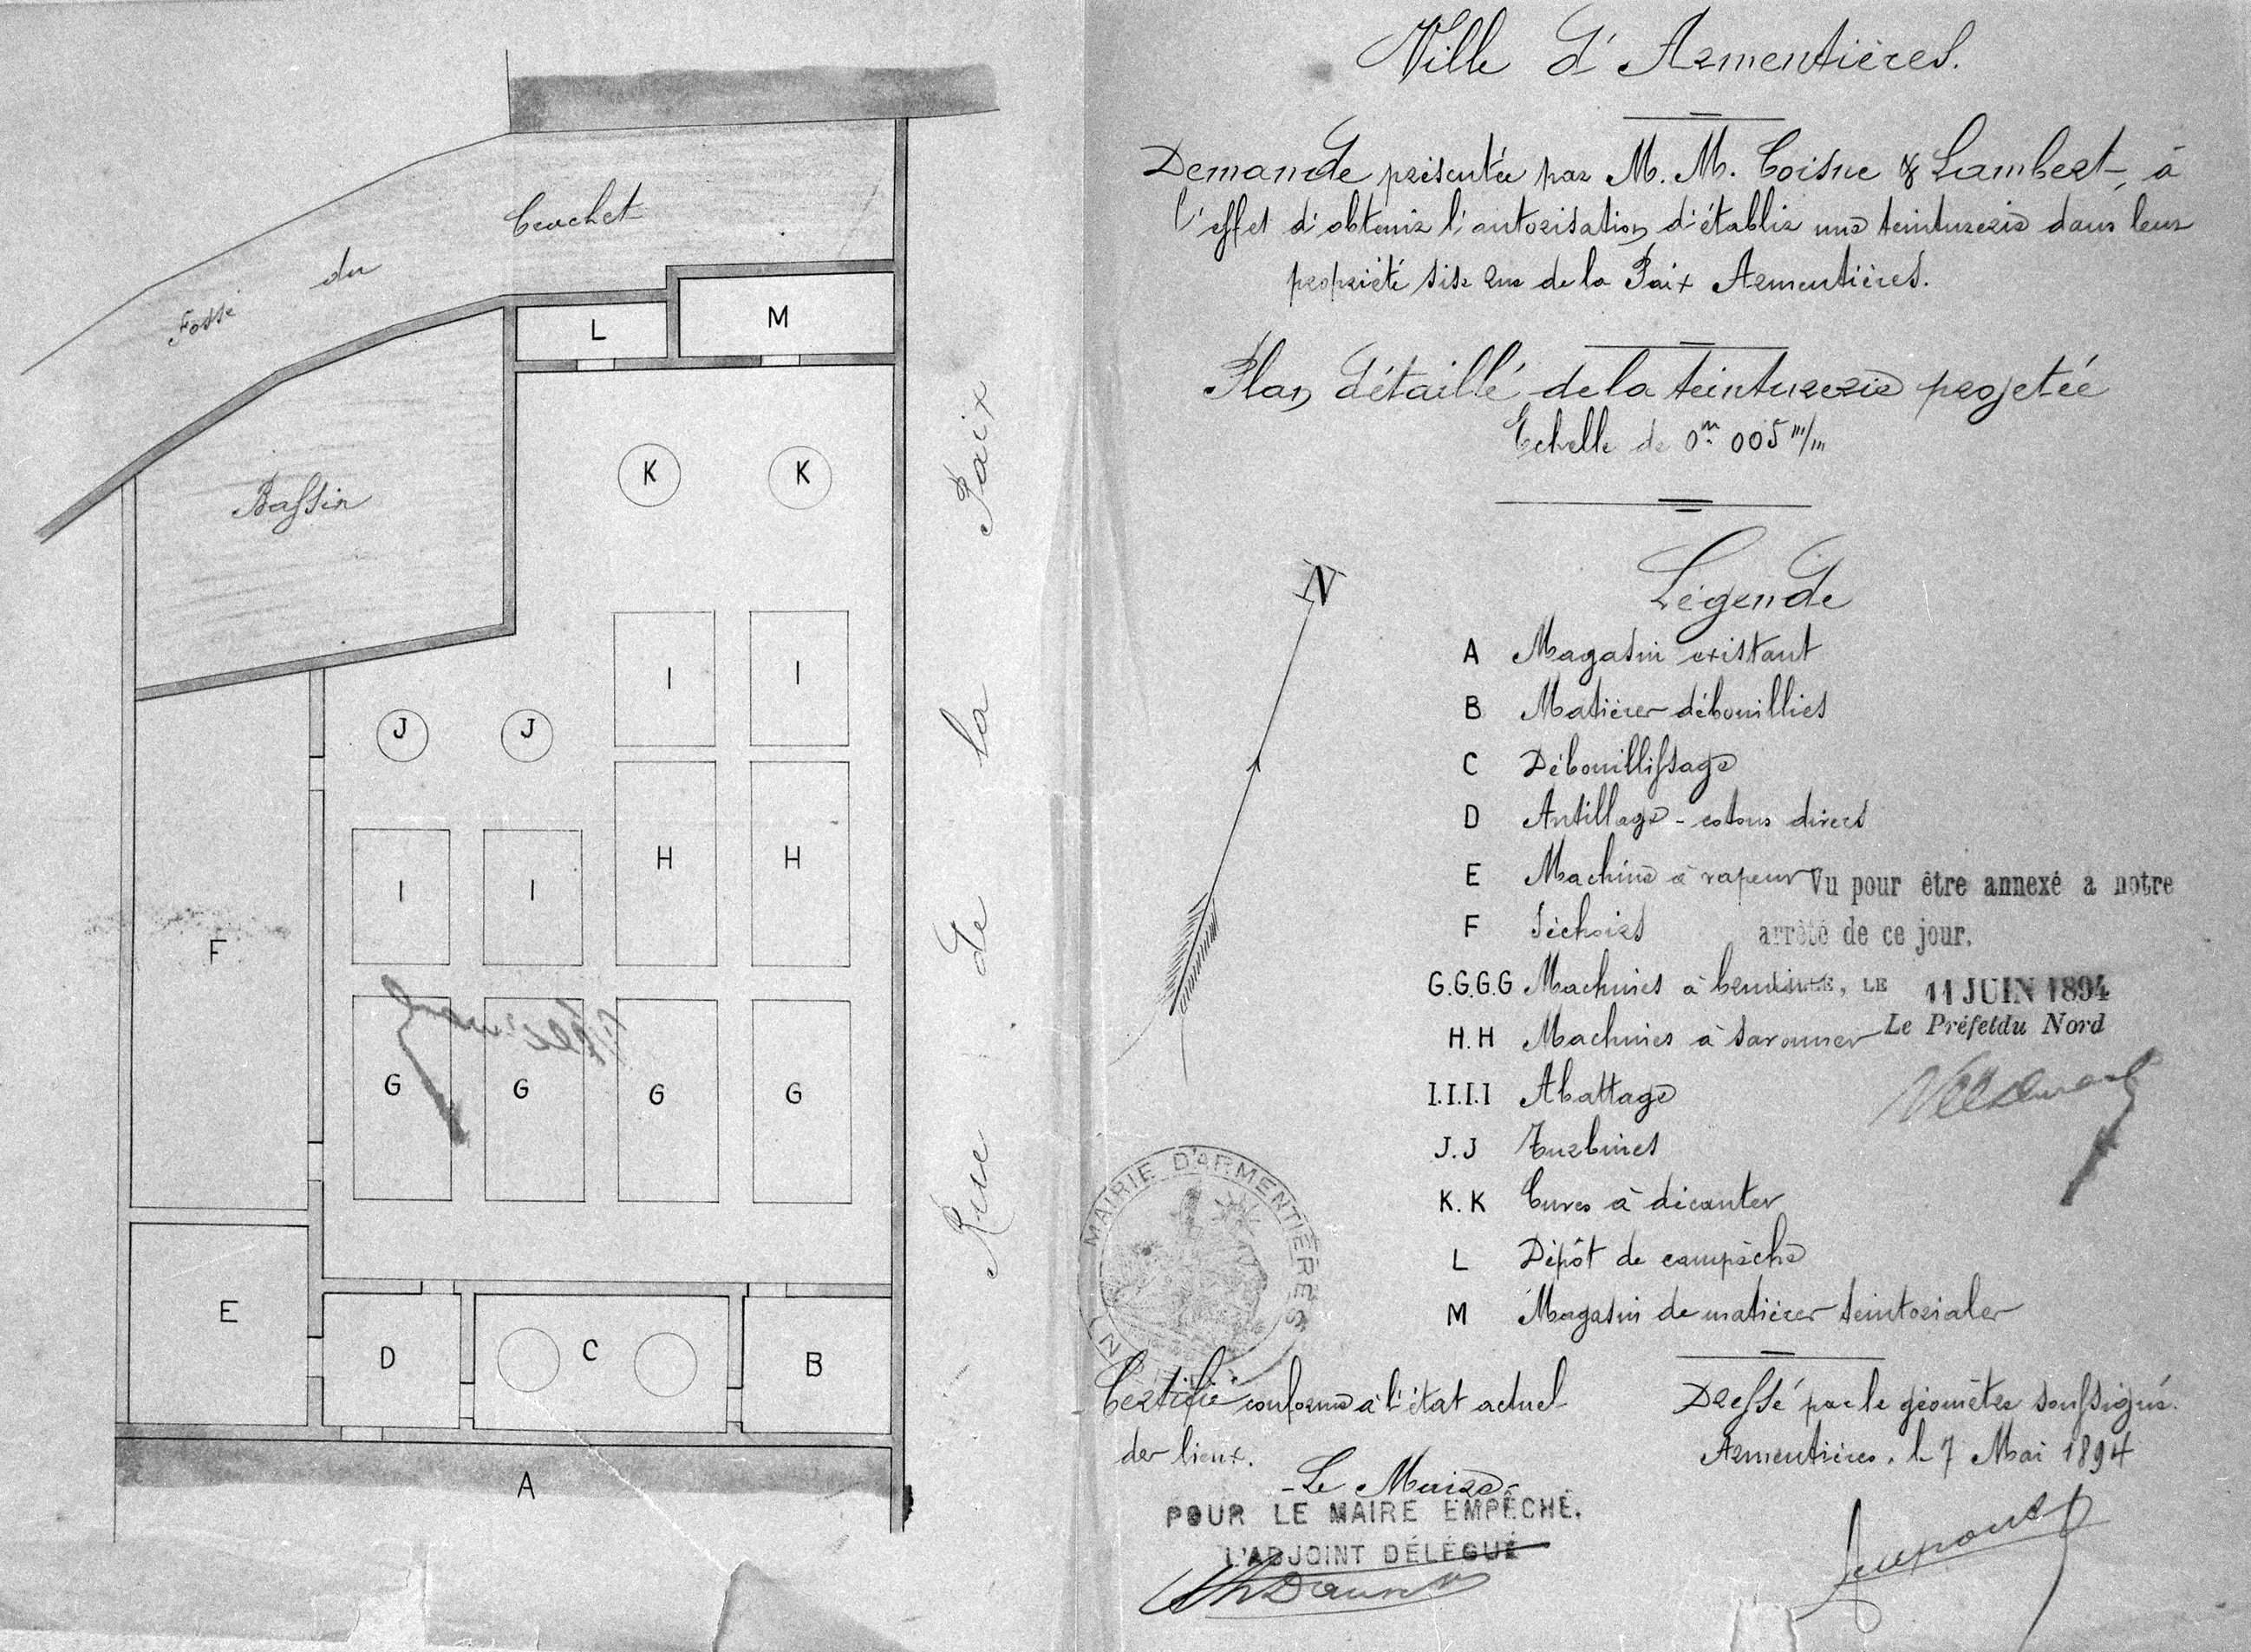 Fossé du Crachet
L
M
Bassin
K K
I I
J J
H H
I I
F
G G G G
E
D C B
A
Rue de la Paix
Ville d'Armentières.
Demande présentée par M. M. Coisne & Lambert, à
l'effet d'obtenir l'autorisation d'établir une teinturerie dans leur
propriété sise rue de la Paix Armentières.
Plan détaillé de la teinturerie projetée
Echelle de 0m 005 m/m
N
Légende
A Magasin existant
B Matières débouillies
C Débouillissage
D - cotons divers
E Machine à vapeur
F Séchoirs
G.G.G.G Machines à
H.H Machines à savonner
I.I.I.I Abattage
J.J Turbines
K.K Cuves à décanter
L Dépôt de campêche
M Magasin de matières tinctoriales
Vu pour être annexé a notre
arrêté de ce jour.
LILLE, LE 11 JUIN 1894
Le Préfet du Nord
MAIRIE D'ARMENTIÈRES
Certifié conforme à l'état actuel
des lieux.
- Le Maire -
POUR LE MAIRE EMPÊCHÉ.
L'ADJOINT DÉLÉGUÉ
Dressé par le géomètre soussigné.
Armentières, le 7 Mai 1894